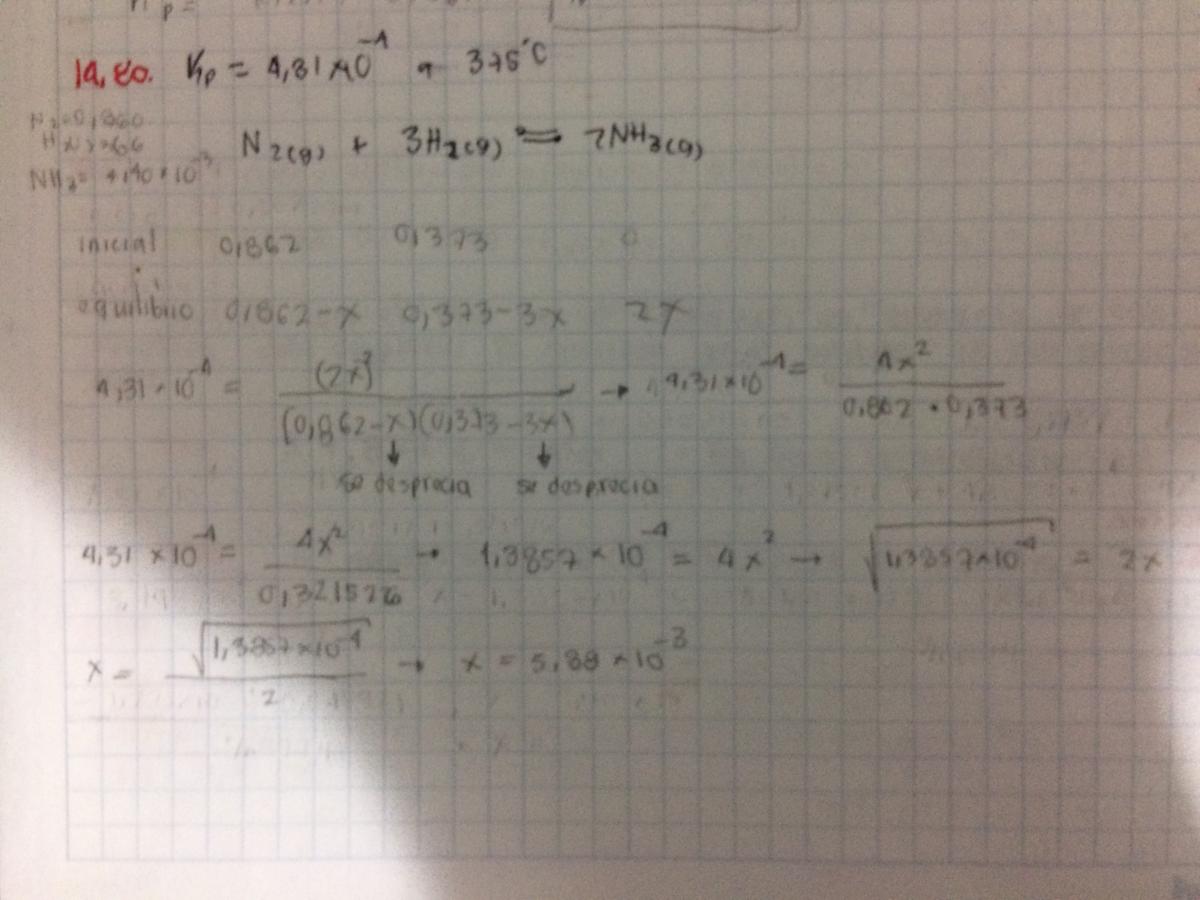 14.80. Kp = 4,31 x 10⁻⁴ a 375°C
N₂ = 0,860
NH₃ = 4,40 * 10⁻³
N₂(g) + 3H₂(g) ⇌ 2NH₃(g)
inicial 0,862 0,373 0
equilibrio 0,862-x 0,373-3x 2x
4,31 * 10⁻⁴ = (2x)² / (0,862-x)(0,373-3x) → 4,31 x 10⁻⁴ = 4x² / 0,862 • 0,373
↓ ↓
se desprecia se desprecia
4,31 x 10⁻⁴ = 4x² / 0,321526 → 1,3857 * 10⁻⁴ = 4x² → √1,3857 x 10⁻⁴ = 2x
x = √1,3857 x 10⁻⁴ / 2 → x = 5,88 * 10⁻³